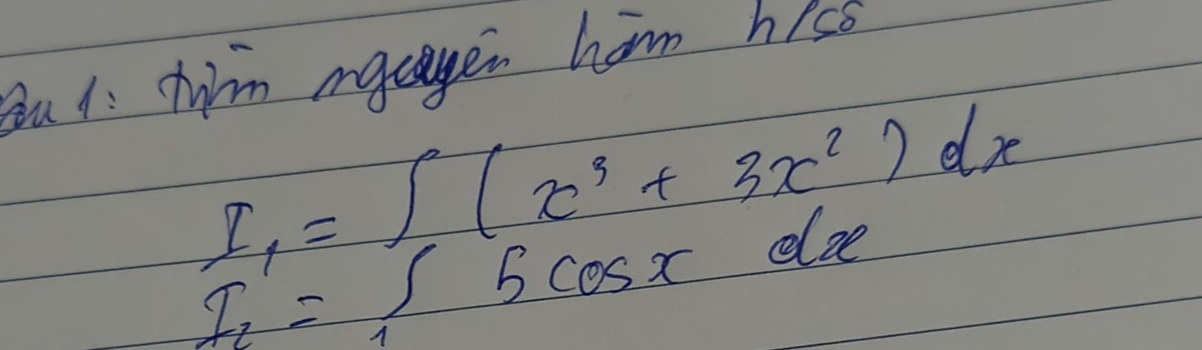 Câu 1: tìm nguyên hàm h/số
I₁ = ∫ (x³ + 3x²) dx
I₂ = ∫ 5 cosx dx